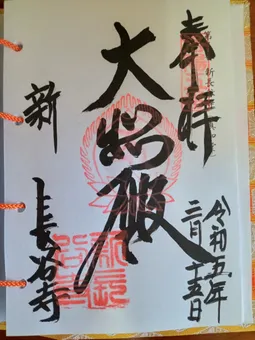 奉拝
大悲殿
令和五年
二月十五日
新長谷寺